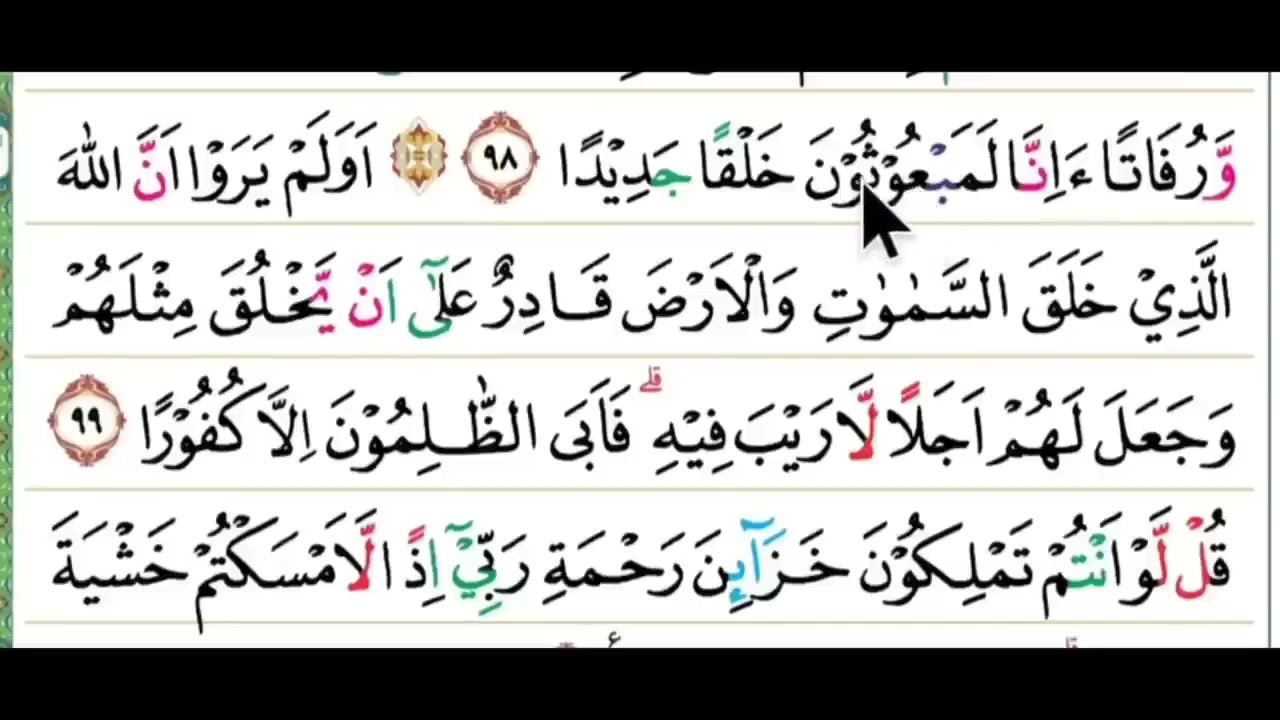 وَّرُفَاتًا ءَاِنَّا لَمَبْعُوْثُوْنَ خَلْقًا جَدِيْدًا ٩٨ اَوَلَمْ يَرَوْا اَنَّ اللّٰهَ
الَّذِيْ خَلَقَ السَّمٰوٰتِ وَالْاَرْضَ قَادِرٌ عَلٰٓى اَنْ يَّخْلُقَ مِثْلَهُمْ
وَجَعَلَ لَهُمْ اَجَلًا لَّا رَيْبَ فِيْهِ ۗ فَاَبَى الظّٰلِمُوْنَ اِلَّا كُفُوْرًا ٩٩
قُلْ لَّوْ اَنْتُمْ تَمْلِكُوْنَ خَزَاۤىِٕنَ رَحْمَةِ رَبِّيْٓ اِذًا لَّاَمْسَكْتُمْ خَشْيَةَ